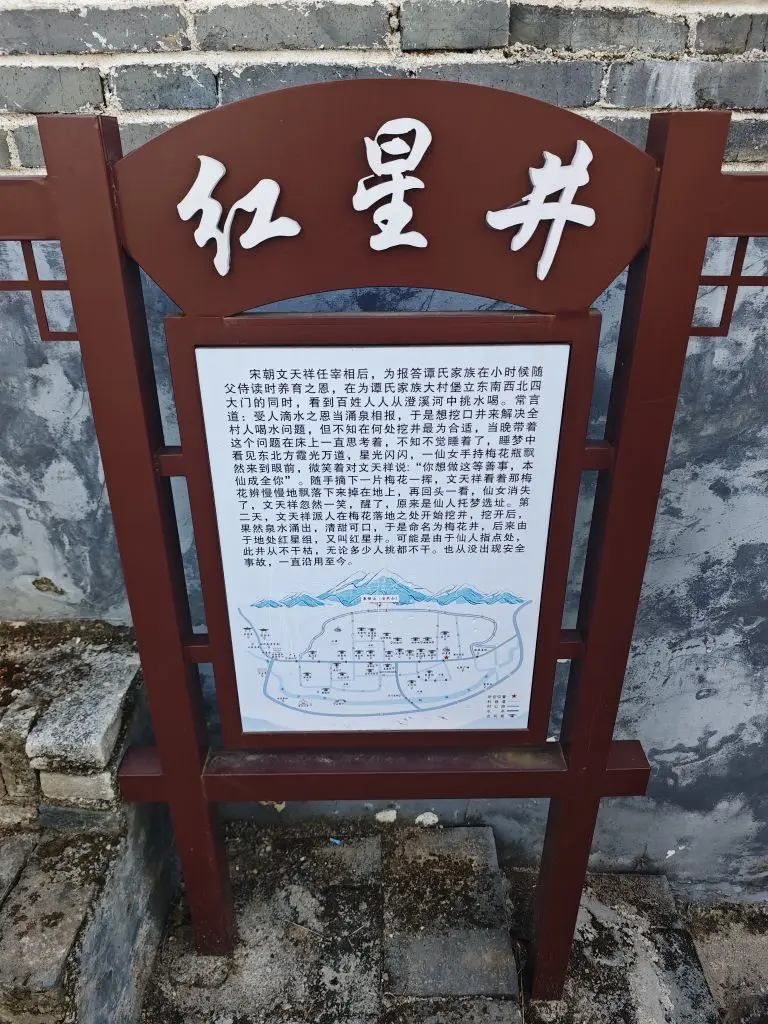 红星井
宋朝文天祥任宰相后，为报答谭氏家族在小时候随
父侍读时养育之恩，在为谭氏家族大村堡立东南西北四
大门的同时，看到百姓人人从澄溪河中挑水喝。常言
道：受人滴水之恩当涌泉相报，于是想挖口井来解决全
村人喝水问题，但不知在何处挖井最为合适，当晚带着
这个问题在床上一直思考着，不知不觉睡着了，睡梦中
看见东北方霞光万道，星光闪闪，一仙女手持梅花瓶飘
然来到眼前，微笑着对文天祥说：“你想做这等善事，本
仙成全你”。随手摘下一片梅花一挥，文天祥看着那梅
花辨慢慢地飘落下来掉在地上，再回头一看，仙女消失
了，文天祥忽然一笑，醒了，原来是仙人托梦选址。第
二天，文天祥派人在梅花落地之处开始挖井，挖开后，
果然泉水涌出，清甜可口，于是命名为梅花井，后来由
于地处红星组，又叫红星井。可能是由于仙人指点处，
此井从不干枯，无论多少人挑都不干。也从没出现安全
事故，一直沿用至今。